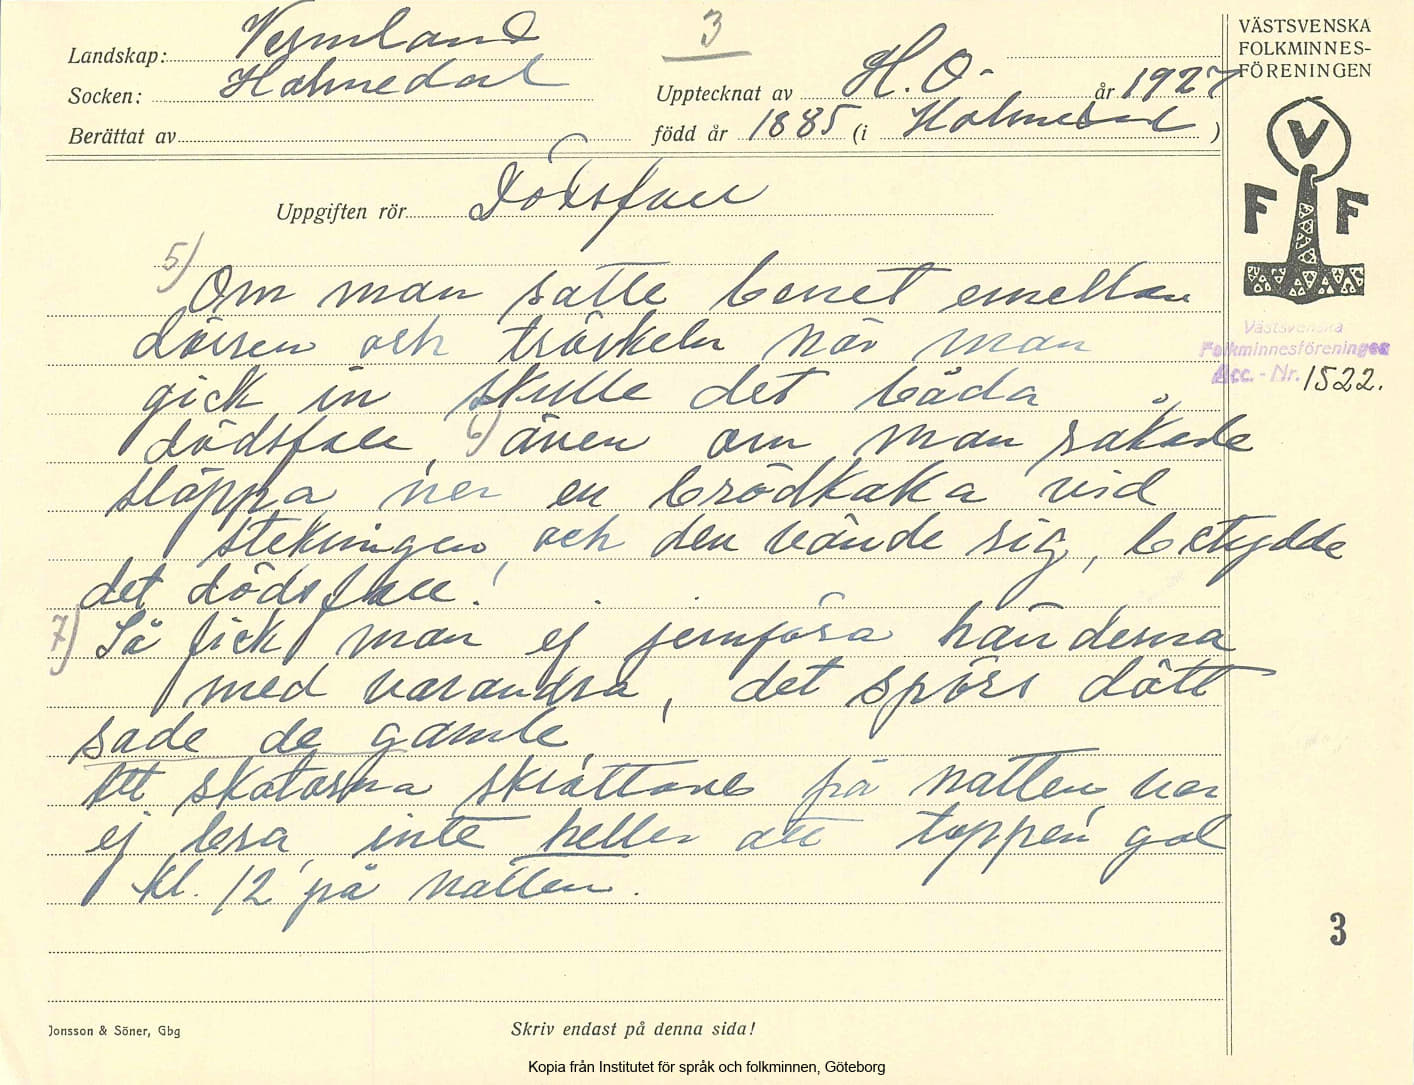 3
Landskap: Vermland
Socken: Holmedal
Berättat av
Upptecknat av H.O- år 1927
född år 1885 (i Holmedal )
VÄSTSVENSKA
FOLKMINNES-
FÖRENINGEN
V
F F
Uppgiften rör Dödsfall
Västsvenska
Folkminnesföreningen
Acc. - Nr. 1522.
5) Om man satte benet emellan
dörren och tröskeln när man
gick in skulle det båda
dödsfall, 6) även om man råkade
släppa ner en brödkaka vid
stekningen, och den vände sig, betydde
det dödsfall!
7) Så fick man ej jemföra händerna
med varandra, det spörs dött
sade de gamle
Att skatorna skrattade på natten, var
ej bra, inte heller att tuppen gol
kl. 12 på natten.
3
Jonsson & Söner, Gbg
Skriv endast på denna sida!
Kopia från Institutet för språk och folkminnen, Göteborg